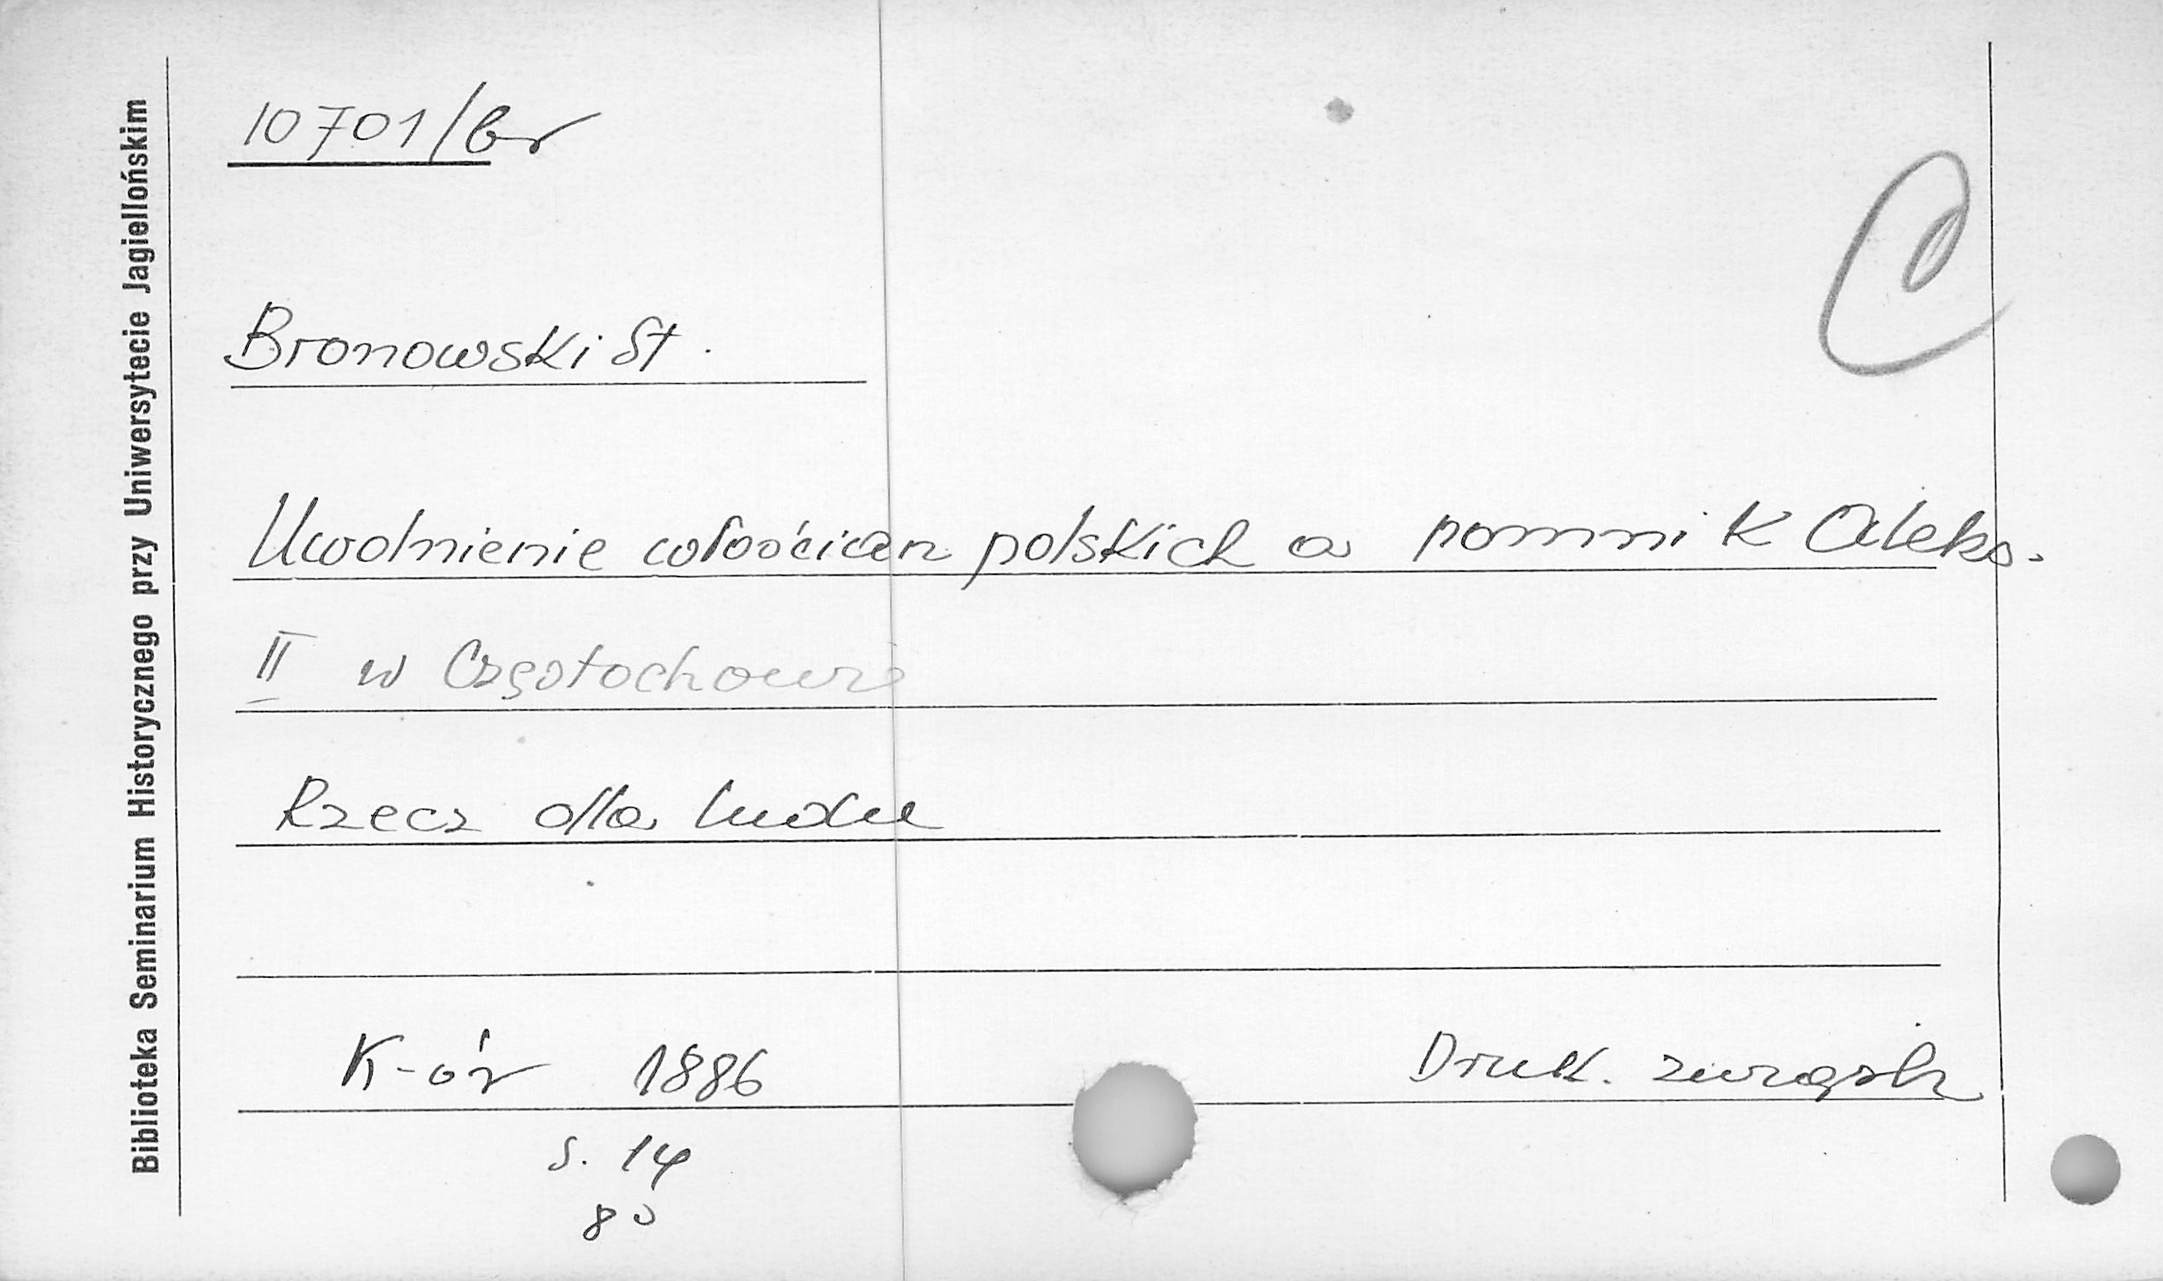 Biblioteka Seminarium Historycznego przy Uniwersytecie Jagiellońskim
10701/br
C
Bronowski St.
Uwolnienie włościan polskich a pomnik Aleks.
II w Częstochowie
Rzecz dla ludu
K-ów 1886 Druk. związk
s. 14
8o